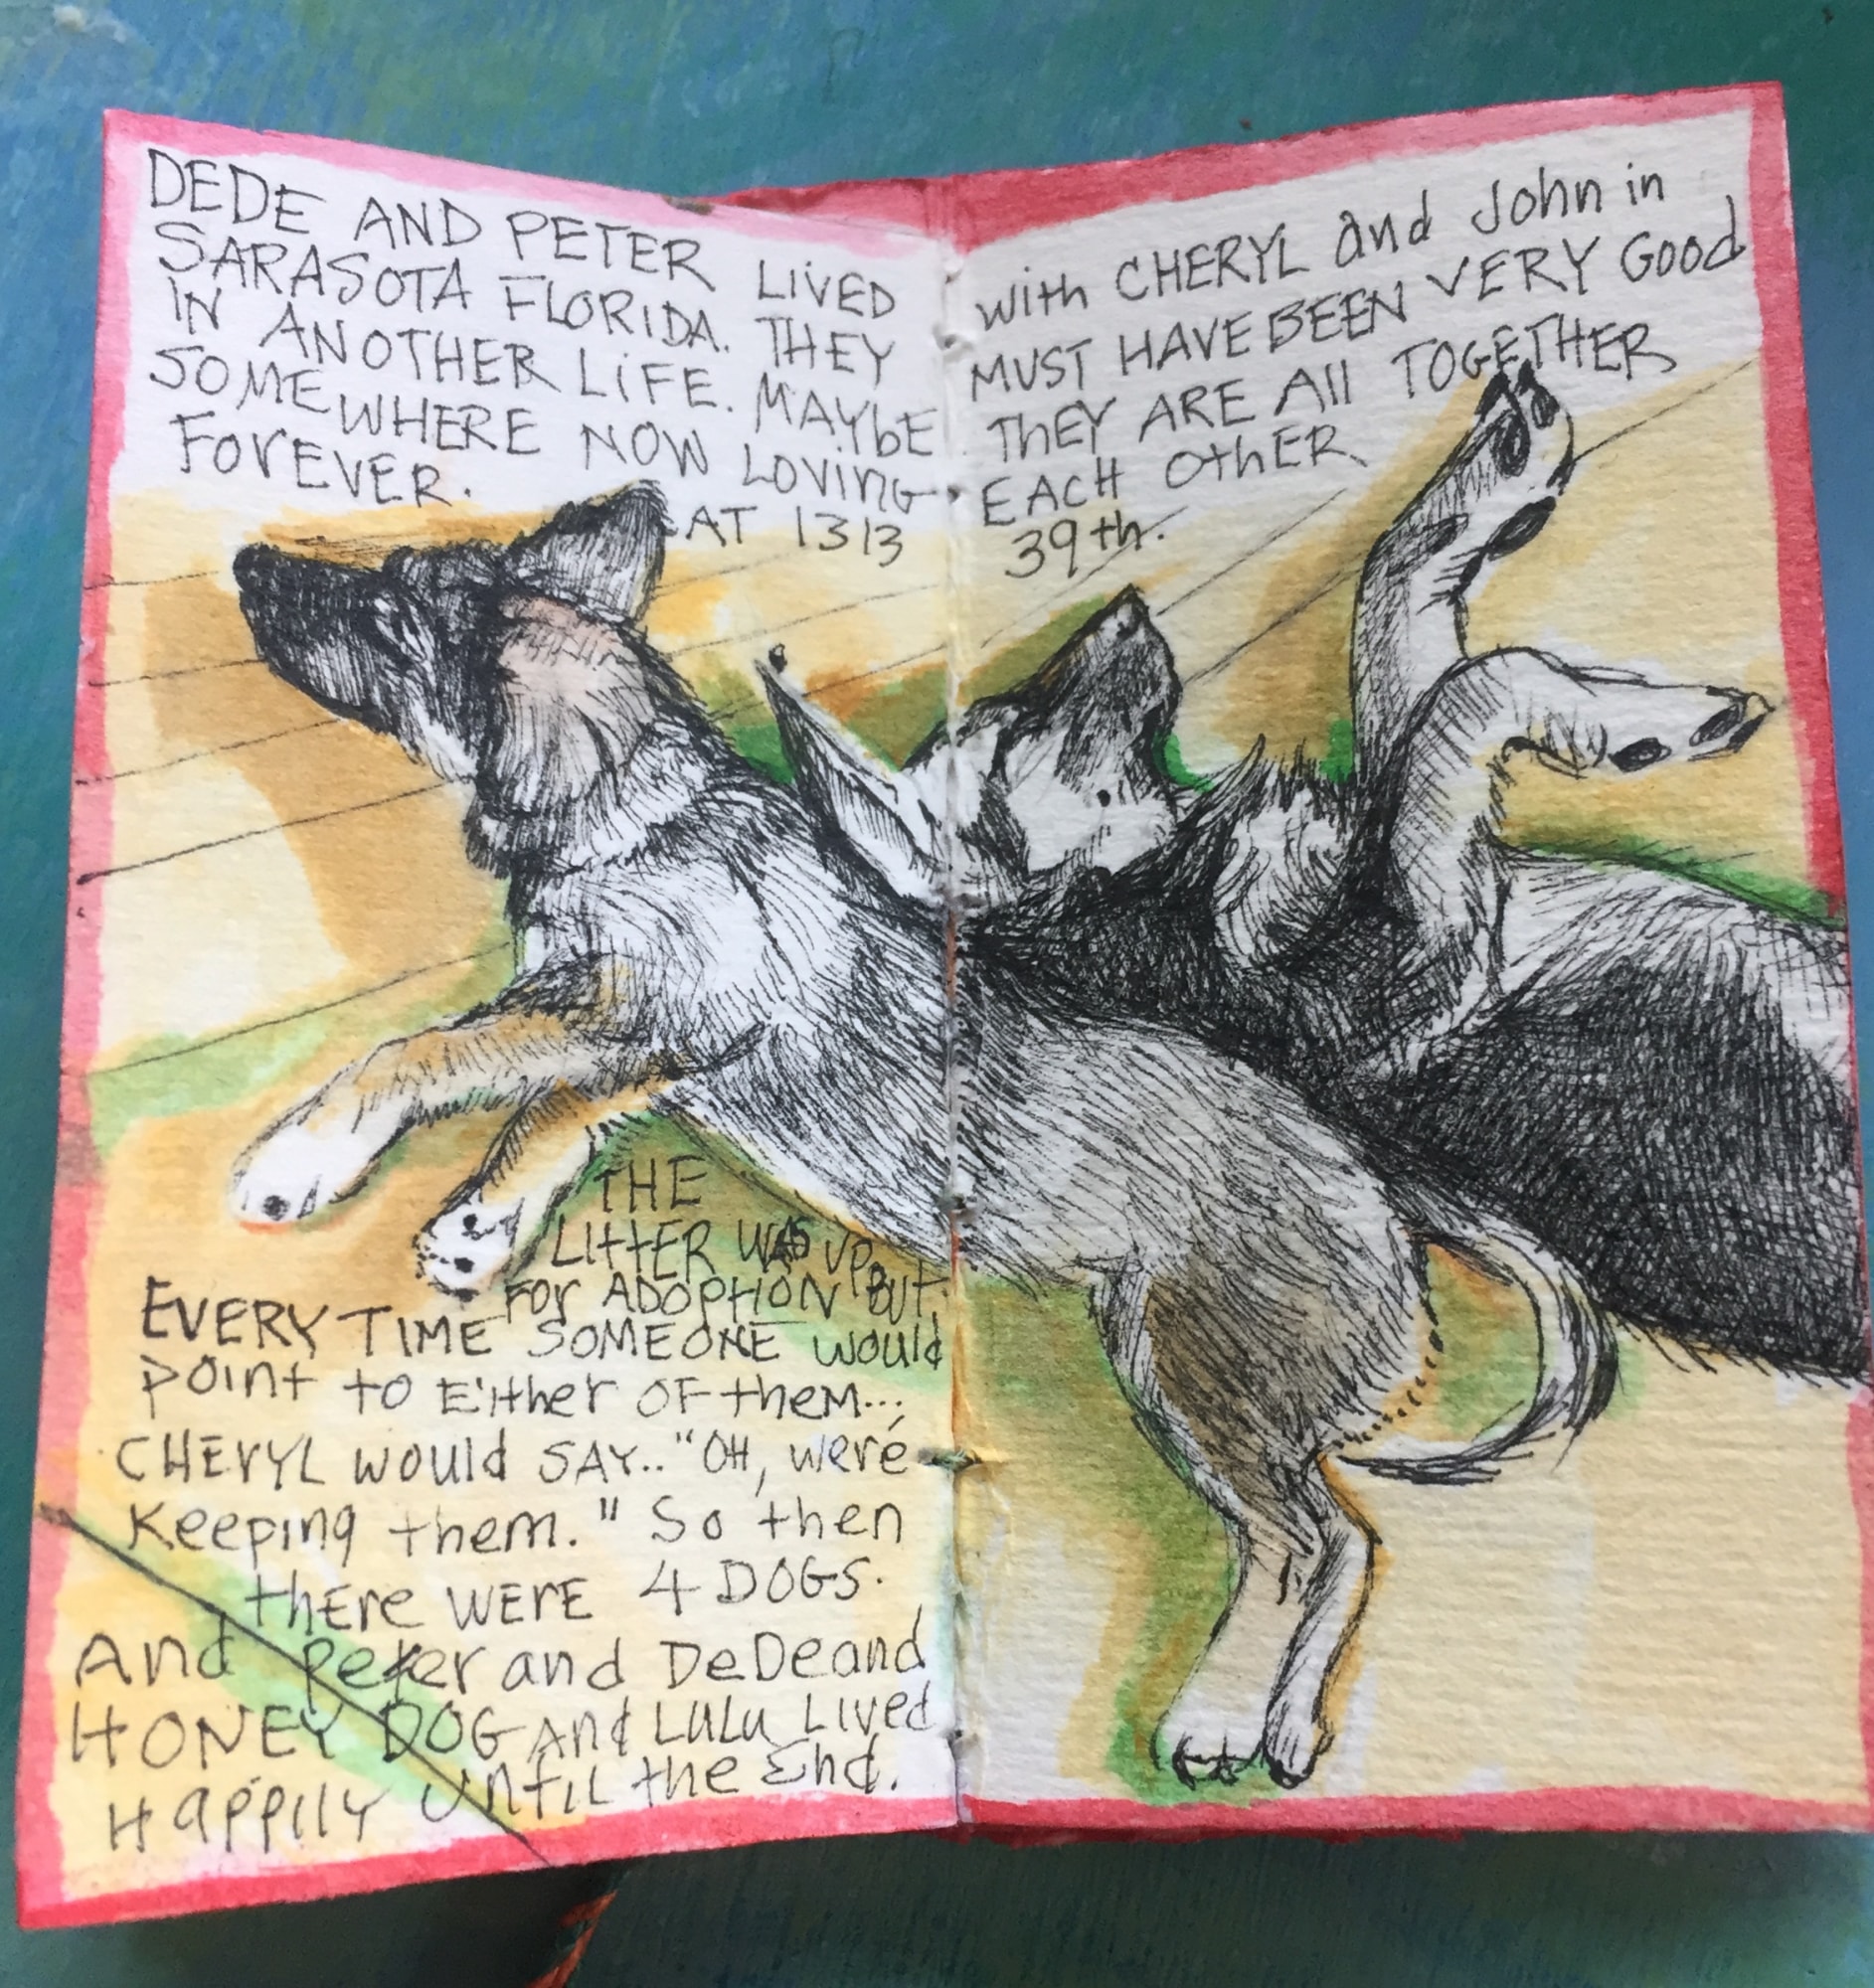 DEDE AND PETER LIVED with CHERYL and John in
SARASOTA FLORIDA. THEY MUST HAVE BEEN VERY Good
IN ANOTHER LIFE. MAYbE ThEY ARE All TOGETHER
SOMEWHERE NOW LOVING EACH OthER
FOrEVER.
AT 1313 39th.
THE
LIttER WAS UP
FOr ADOPtION BUT.
EVERY TIME SOMEONE would
point to EitHer OF theM...
CHErYL would SAY.. "OH, were
Keeping them." So then
thEre WERE 4 DOGS.
And Peter and DeDe and
HONEY DOG And LULu Lived
Happily UNtIL the End.